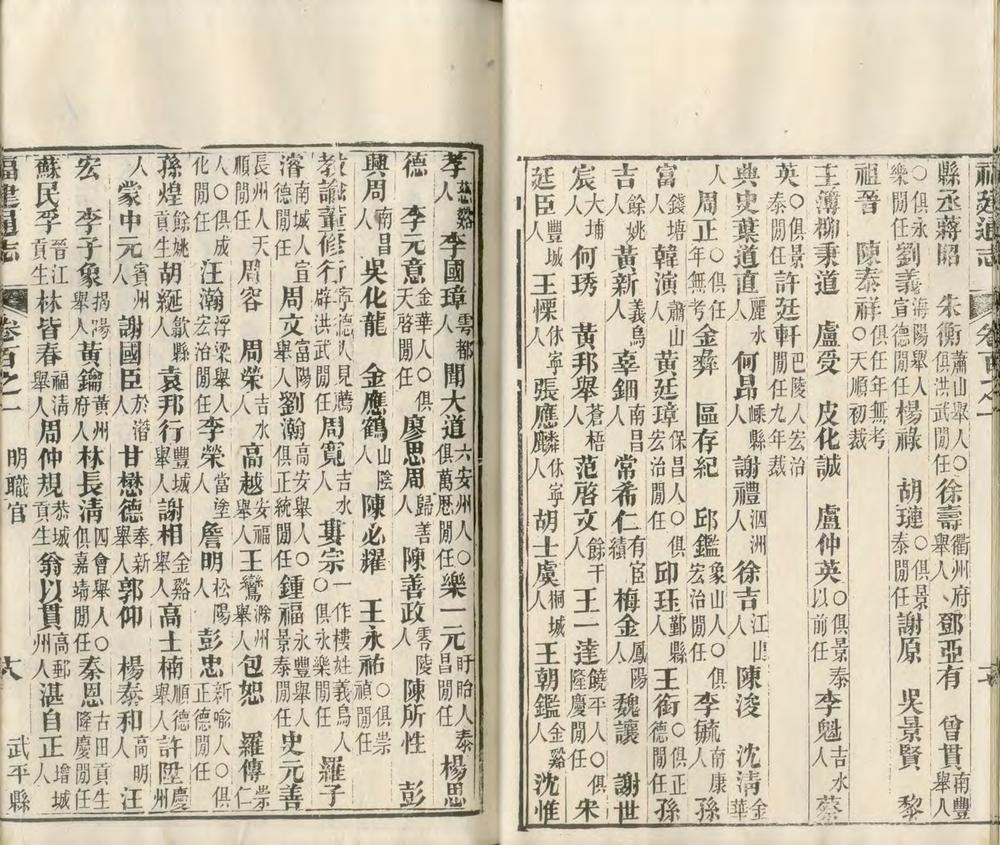 縣丞蔣昭 朱衡蕭山舉人○俱洪武閒任徐壽衢州府舉人鄧亞有 曾貫南豐舉人
○俱永樂閒任劉義海陽舉人宣德閒任楊祿 胡璉○俱景泰閒任謝原 吳景賢 黎
祖晉 陳泰祥俱任年無考○天順初裁
主簿柳秉道 盧受 皮化誠 盧仲英○俱景泰以前任李魁吉水人蔡
英○俱景泰閒任許廷軒巴陵人宏治閒任九年裁
典史葉道直麗水人何昂嵊縣人謝禮泗州人徐吉江山人陳浚 沈淸金華
人周正○俱任年無考金彝 區存紀 邱鑑象山人○俱宏治閒任李毓南康人孫
富錢塘人韓演蕭山人黃廷璋保昌人○俱宏治閒任邱珏鄞縣人王銜○俱正德閒任孫
吉餘姚人黃新義烏人辜鈿南昌人常希仁有宦績梅金鳳陽人魏讓 謝世
宸大埔人何琇 黃邦舉蒼梧人范啓文餘干人王一達饒平人○俱隆慶閒任宋
廷臣豐城人王慄休寧人張應麟休寧人胡士虞桐城人王朝鑑金谿人沈惟
孝慈谿人李國璋雩都人聞大道六安州人○俱萬厯閒任樂一元盱眙人泰昌閒任楊思
德 李元意金華人○俱天啓閒任廖思周歸善人陳善政零陵人陳所性 彭
興周南昌人吳化龍 金應鶴山陰人陳必耀 王永祐○俱崇禎閒任
敎諭董修行寧德人見薦辟洪武閒任周寬吉水人婁宗一作樓姓義烏人○俱永樂閒任羅子
濬南城人宣德閒任周文富陽舉人劉瀚高安舉人○俱正統閒任鍾福永豐舉人景泰閒任史元善
長州人天順閒任周容 周榮吉水人高越安福舉人王鸞滁州舉人包恕 羅傳崇仁
人○俱成化閒任汪瀚浮梁舉人宏治閒任李榮當塗人詹明松陽人彭忠新喻人○俱正德閒任
孫煌餘姚貢生胡綖歙縣人袁邦行豐城舉人謝相金谿舉人高士楠順德舉人許陞慶州
人蒙中元賓州人謝國臣於潛人甘懋德奉新舉人郭仰 楊泰和高明人汪
宏 李子象揭陽舉人黃鑰黃州府人林長淸四會舉人○俱嘉靖閒任秦恩古田貢生隆慶閒任
蘇民孚晉江貢生林皆春福淸舉人周仲規恭城貢生翁以貫高郵州人湛自正增城人
福建通志 卷百之一 明職官 六 武平縣